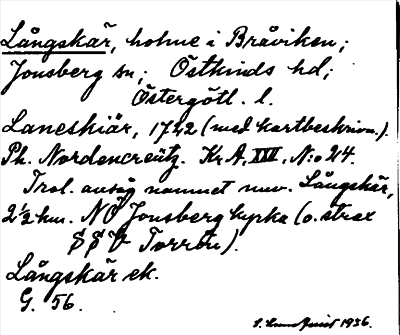 Långskär, holme i Bråviken;
Jonsberg sn; Östkinds hd;
Östergötl. l.
Laneskiär, 1722 (med kartbeskrivn.).
Ph. Nordencreütz. Kr. A, XVI, N:o 24.
Trol. avsåg namnet nuv. Långskär,
2½ km. NO Jonsberg kyrka (o. strax
SSV Torrön).
Långskär ek.
G. 56.
1936.